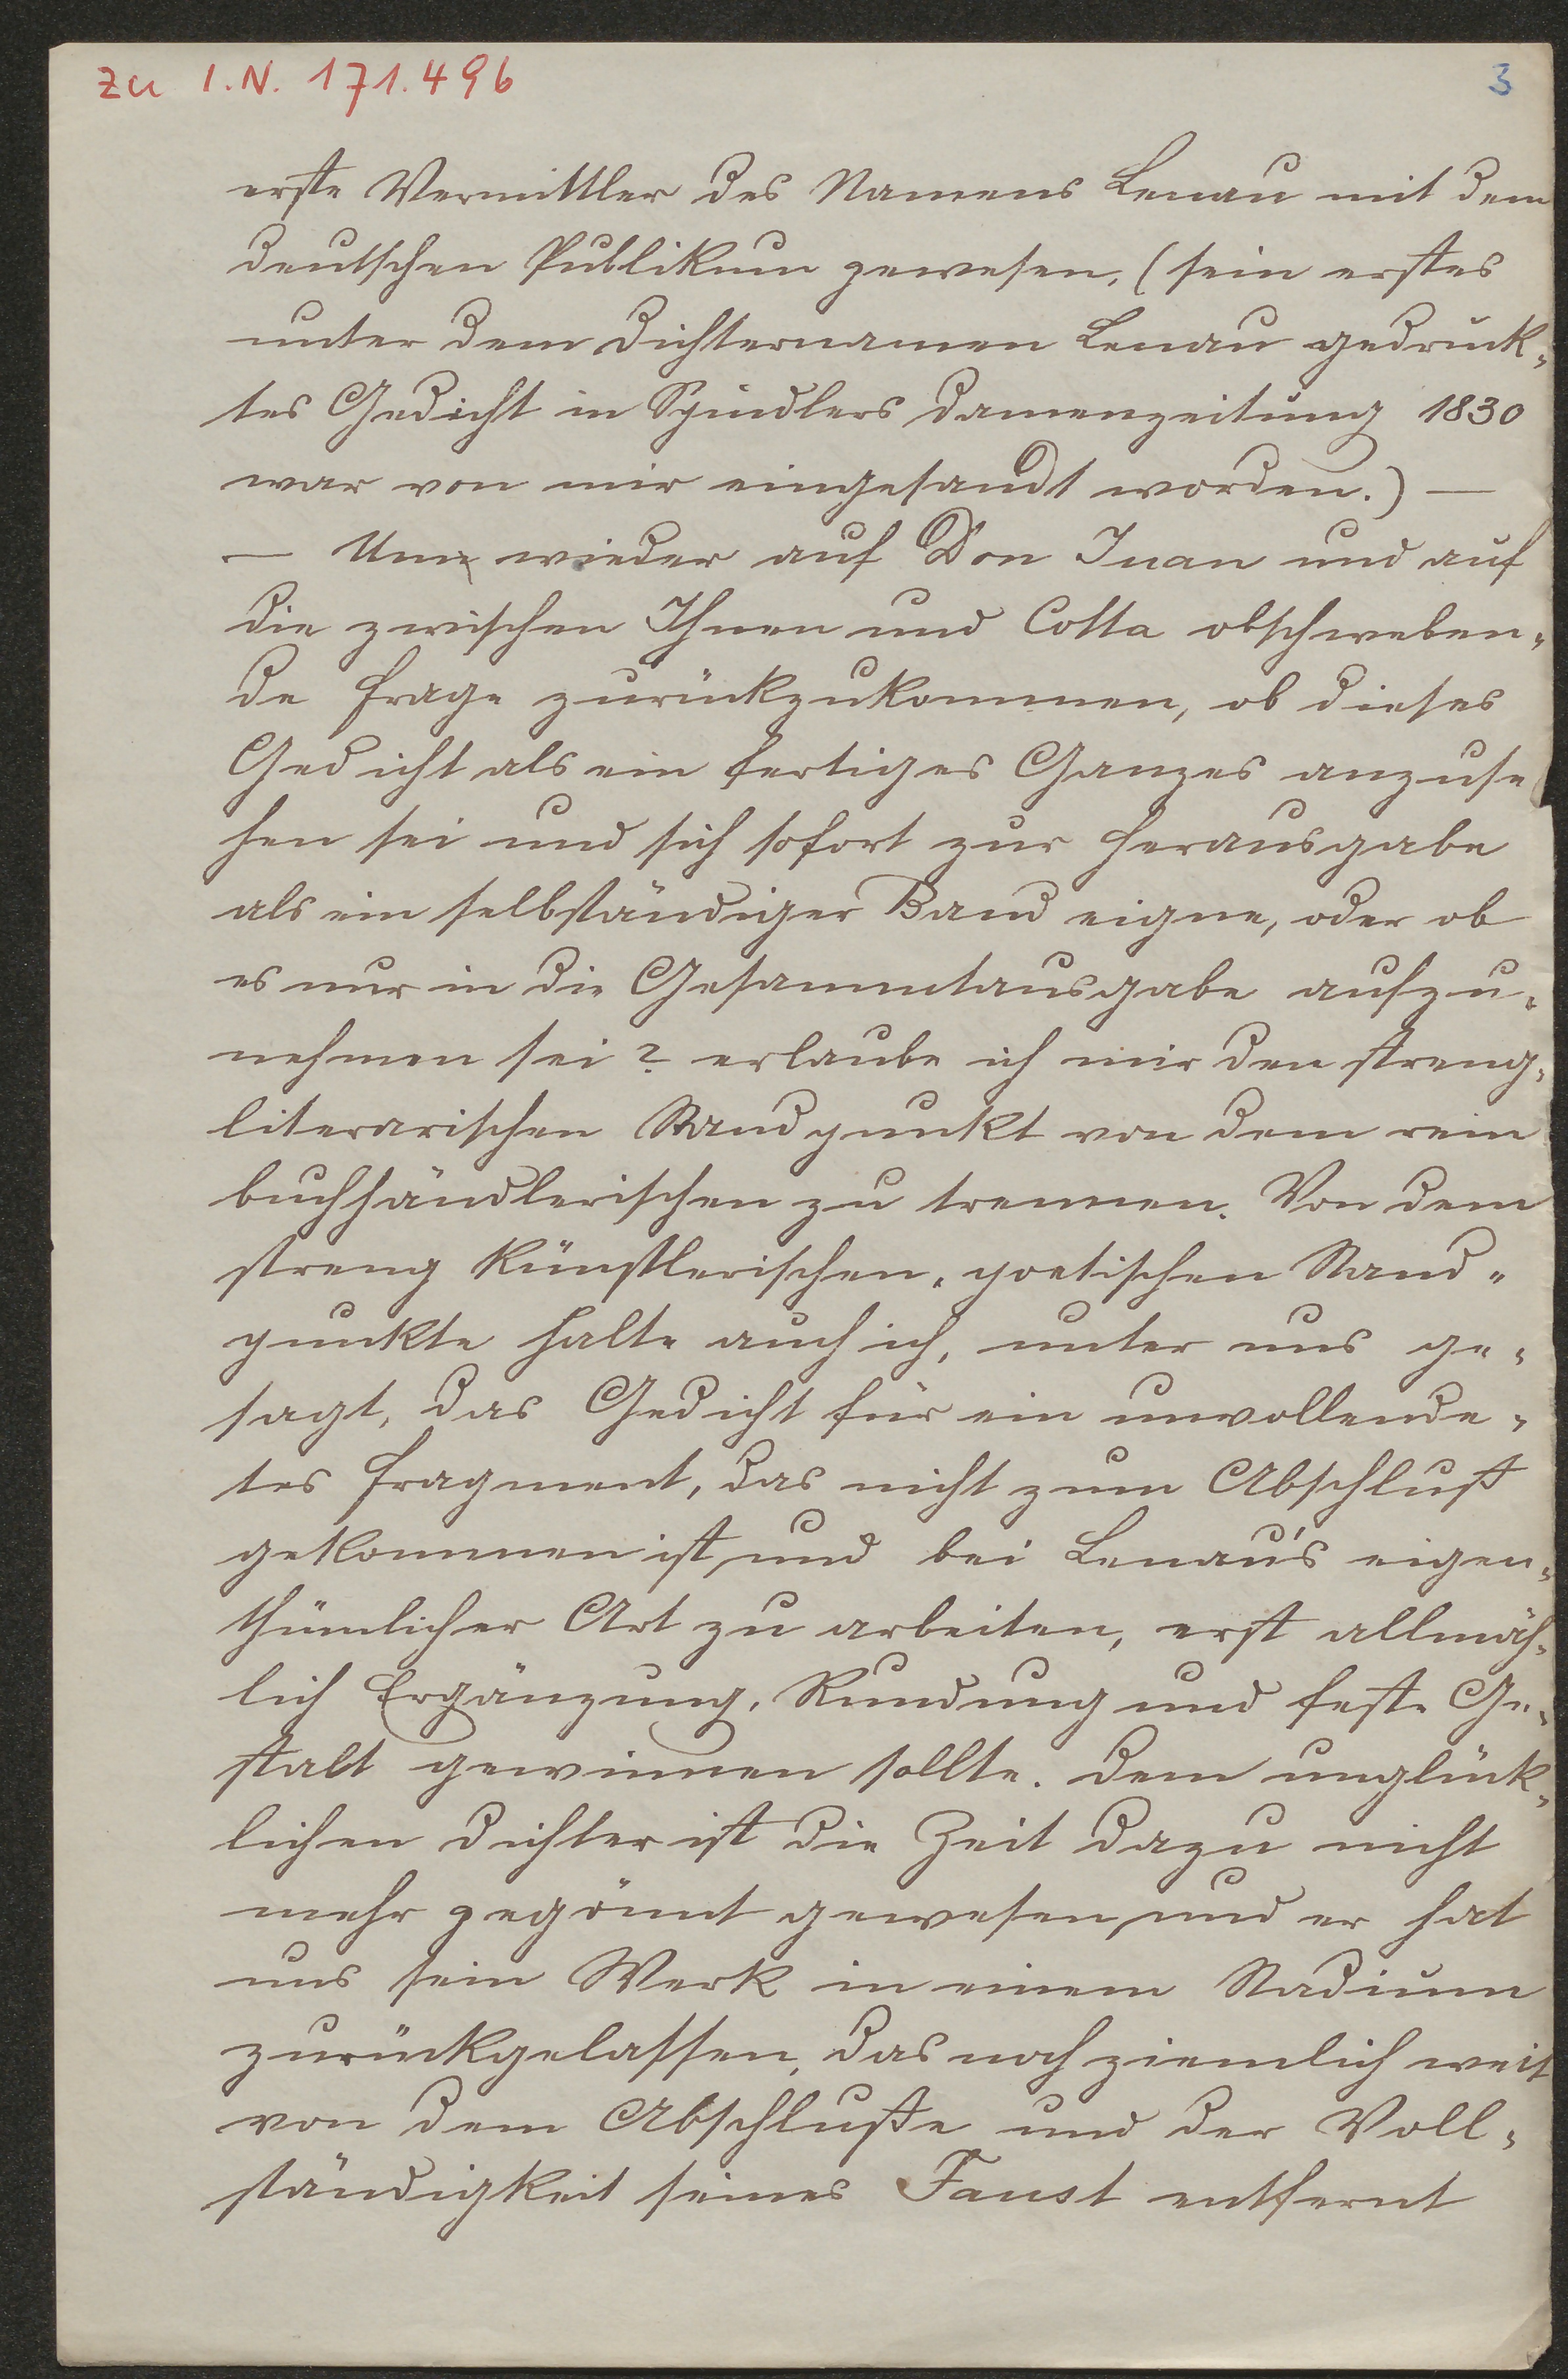 zu I.N. 171.496
3
erste Vermittler des Namens Lenau mit dem
deutschen Publikum gewesen, (sein erstes
unter dem Dichternamen Lenau gedruck-
tes Gedicht in Spindlers Damenzeitung 1830
war von mir eingesandt worden.) —
— Um wieder auf Don Juan und auf
die zwischen Ihnen und Cotta obschweben-
de Frage zurückzukommen, ob dieses
Gedicht als ein fertiges Ganzes anzuse
hen sei und sich sofort zur Herausgabe
als ein selbständiger Band eigne, oder ob
es nur in die Gesammtausgabe aufzu-
nehmen sei? erlaube ich mir den streng-
literarischen Standpunkt von dem rein
buchhändlerischen zu trennen. Von dem
streng künstlerischen, poetischen Stand-
punkte halte auch ich, unter uns ge-
sagt, das Gedicht für ein unvollende-
tes Fragment, das nicht zum Abschluß
gekommen ist, und bei Lenau's eigen-
thümlicher Art zu arbeiten, erst allmäh-
lich Ergänzung, Rundung und feste Ge-
stalt gewinnen sollte. Dem unglück-
lichen Dichter ist die Zeit dazu nicht
mehr gegönnt gewesen, und er hat
uns sein Werk in einem Stadium
zurückgelassen, das noch ziemlich weit
von dem Abschluße und der Voll-
ständigkeit seines Faust entfernt